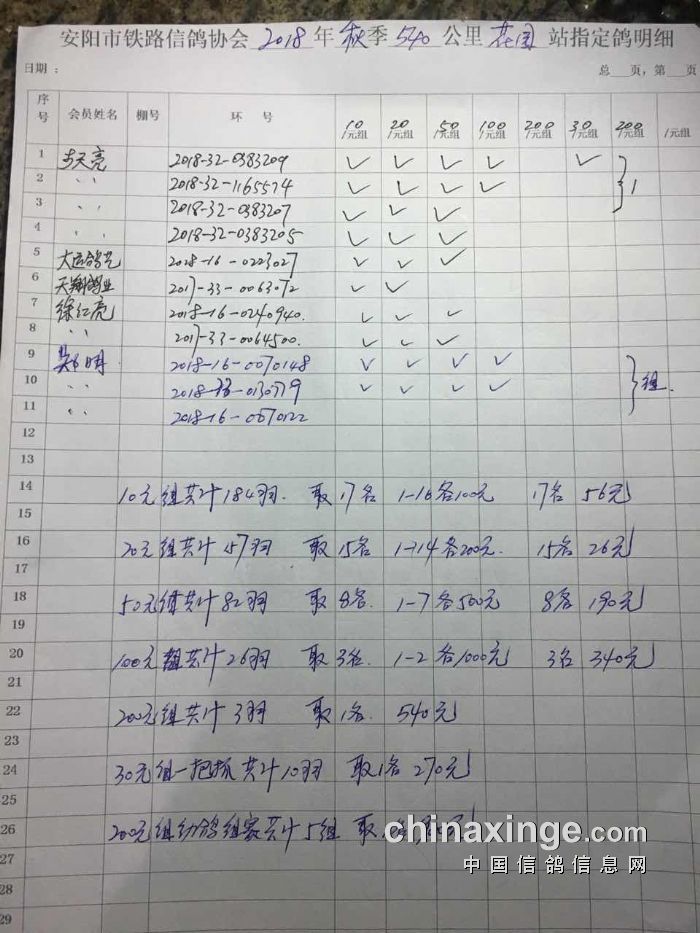 安阳市铁路信鸽协会 2018 年 秋季 540 公里 花园 站指定鸽明细
日期： 总 页，第 页
序号 会员姓名 棚号 环号 10/元组 20/元组 50/元组 100/元组 200/元组 30/元组 200/元组 /元组
1 天亮 2018-32-0383209 ✓ ✓ ✓ ✓ ✓
2 〃 2018-32-1165574 ✓ ✓ ✓ ✓ } 1
3 〃 2018-32-0383207 ✓ ✓ ✓
4 〃 2018-32-0383205 ✓ ✓ ✓
5 大运鸽苑 2018-16-0223027 ✓ ✓ ✓
6 天翔鸽业 2017-33-0063072 ✓ ✓
7 徐红亮 2018-16-0240940. ✓ ✓ ✓
8 〃 2017-33-0064500. ✓ ✓ ✓
9 明 2018-16-0070148 ✓ ✓ ✓ ✓
10 〃 2018-33-0130779 ✓ ✓ ✓ ✓ } 1组.
11 〃 2018-16-0070122
12
13
14 10元组共计184羽. 取17名 1-16各100元 17名 56元
15
16 20元组共计157羽 取15名 1-14各200元. 15名 26元
17
18 50元组共计82羽 取8名. 1-7各500元 8名 190元
19
20 100元组共计26羽 取3名. 1-2各1000元 3名 340元
21
22 200元组共计3羽 取1名. 540元
23
24 30元组一把抓共计10羽 取1名 270元
25
26 200元组幼鸽组赛共计5组 取
27
28
29
chinaxinge.com
中国信鸽信息网